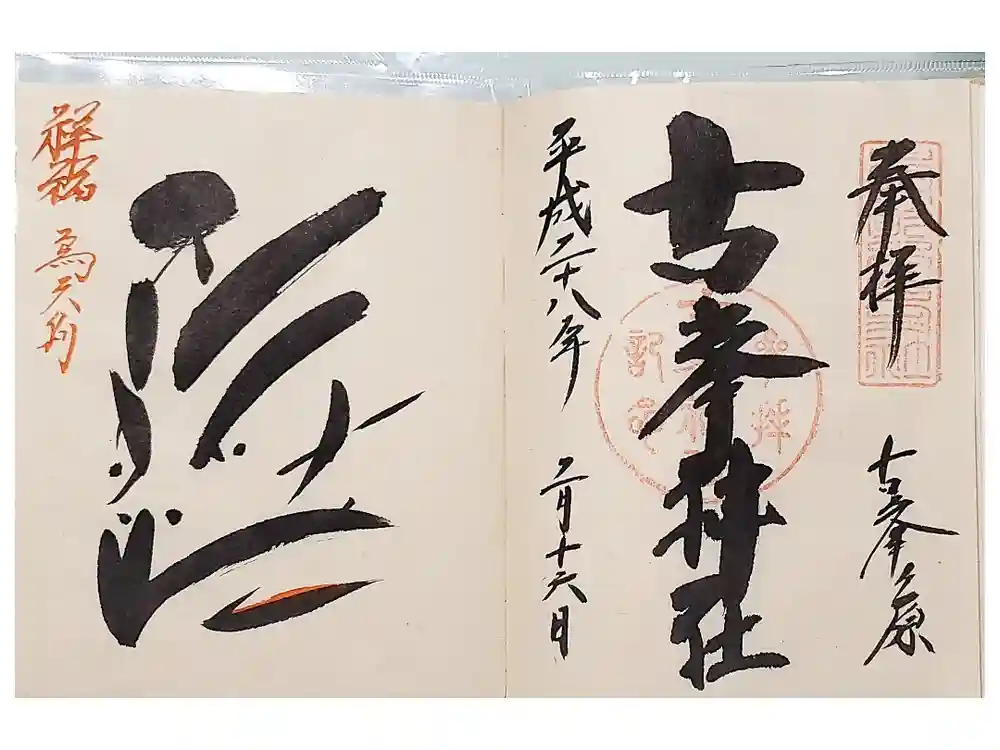 奉拝
古峯ヶ原
古峯神社
平成二十八年 二月十六日
祥福 烏天狗